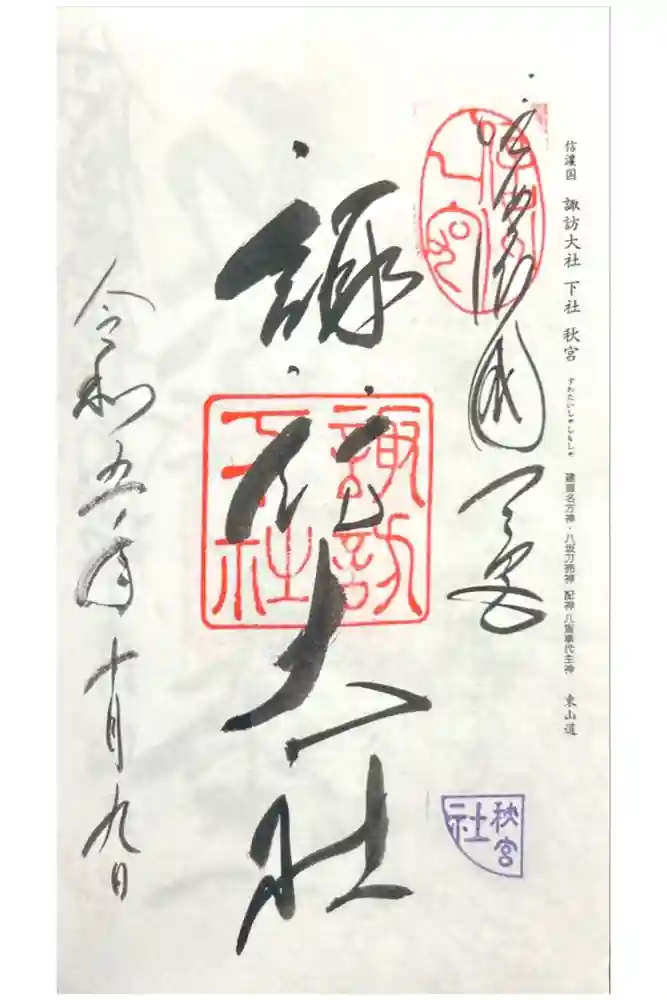 信濃国 諏訪大社 下社 秋宮 すわたいしゃしもしゃ 建御名方神・八坂刀売神 配神 八重事代主神 東山道
諏訪大社
諏訪
下社
令和五年十月九日
秋宮
社